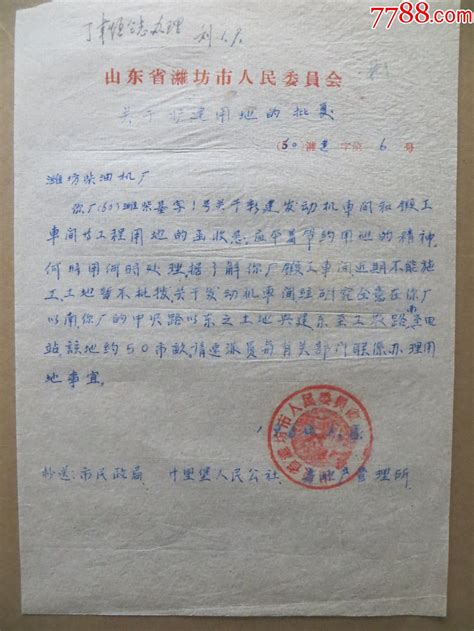 7788.com
丁 同志办理 刘
山东省濰坊市人民委員会
关于扩建用地的批复
(60)濰建字第6号
濰坊柴油机厂
你厂(60)濰柴基字1号关于新建发动机車间和鍛工
車间等工程用地的函收悉,茲本着节約用地的精神,
何时用何时处理,据了解你厂鍛工車间近期不能施
工,土地暂不批拨,关于发动机車间经研究同意在你厂
以南你厂的中央路以东之土地兴建,东至工农路,南至电
站,該地約50市畝,请速派员与有关部门联系办理用
地事宜。
山东省濰坊市人民委員会
抄送:市民政局 十里堡人民公社 房地产管理所